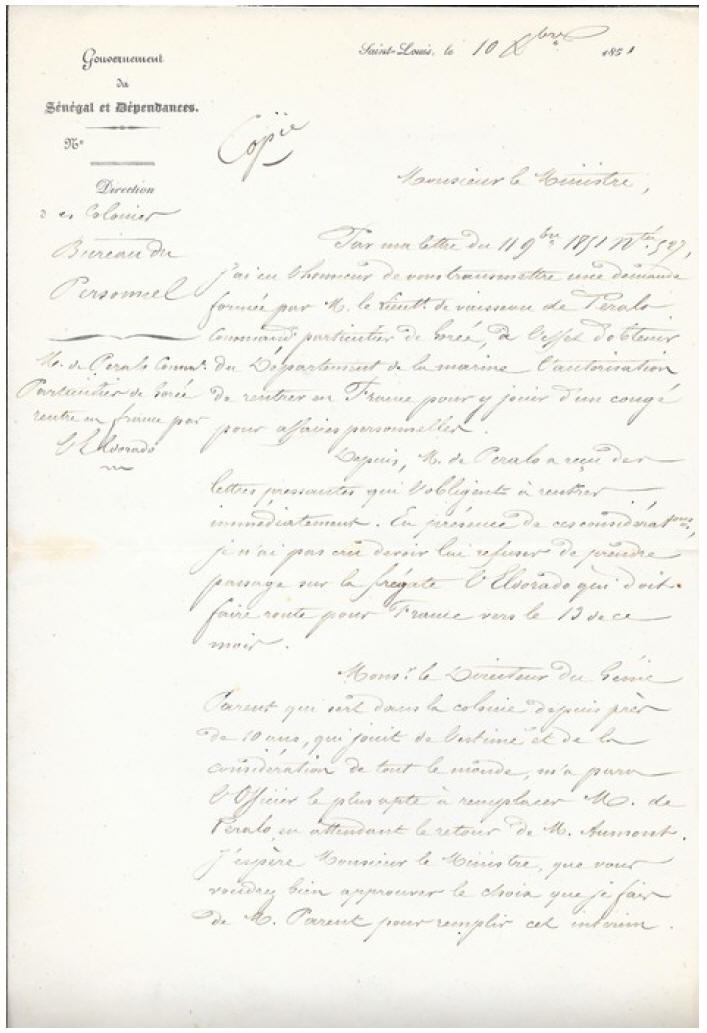 Gouvernement
du
Sénégal et Dépendances.
N°
Direction
des Colonies
Bureau du
Personnel
M. de Peralo Command.
Particulier de Gorée
rentre en france par
l'Eldorado
Saint-Louis, le 10 Xbre 1851
Copie
Monsieur le Ministre,
Par ma lettre du 11 9bre 1851 N° 527,
j'ai eu l'honneur de vous transmettre une demande
formée par M. le Lieutt. de vaisseau de Peralo
Commandt particulier de Gorée, à l'effet d'obtenir
du Département de la marine l'autorisation
de rentrer en France pour y jouir d'un congé
pour affaires personnelles.
Depuis, M. de Peralo a reçu des
lettres pressantes qui l'obligent à rentrer
immédiatement. En présence de ces considérations,
je n'ai pas cru devoir lui refuser de prendre
passage sur la frégate l'Eldorado qui doit
faire route pour France vers le 13 de ce
mois.
Monsr. le Directeur du Génie
Parent qui sert dans la colonie depuis près
de 10 ans, qui jouit de l'estime et de la
considération de tout le monde, m'a paru
l'Officier le plus apte à remplacer M. de
Peralo en attendant le retour de M. Aumont.
J'espère Monsieur le Ministre, que vous
voudrez bien approuver le choix que je fais
de M. Parent pour remplir cet intérim.